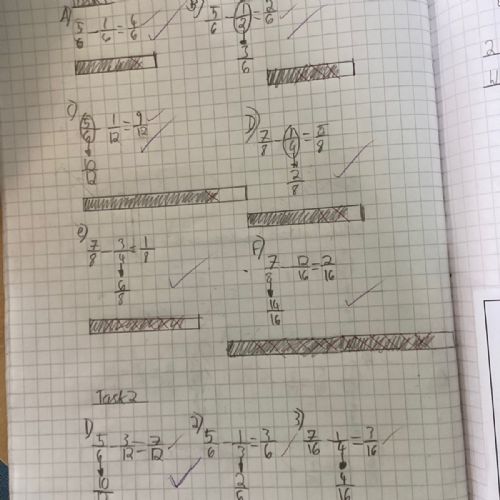 A) 5/6 - 1/6 = 4/6
B) 5/6 - 1/2 = 2/6
3/6
C) 5/6 - 1/12 = 9/12
10/12
D) 7/8 - 1/4 = 5/8
2/8
e) 7/8 - 3/4 = 1/8
6/8
F) 7/8 - 12/16 = 2/16
14/16
Task 2
1) 5/6 - 3/12 = 7/12
2) 5/6 - 1/3 = 3/6
3) 7/16 - 1/4 = 3/16
4/16